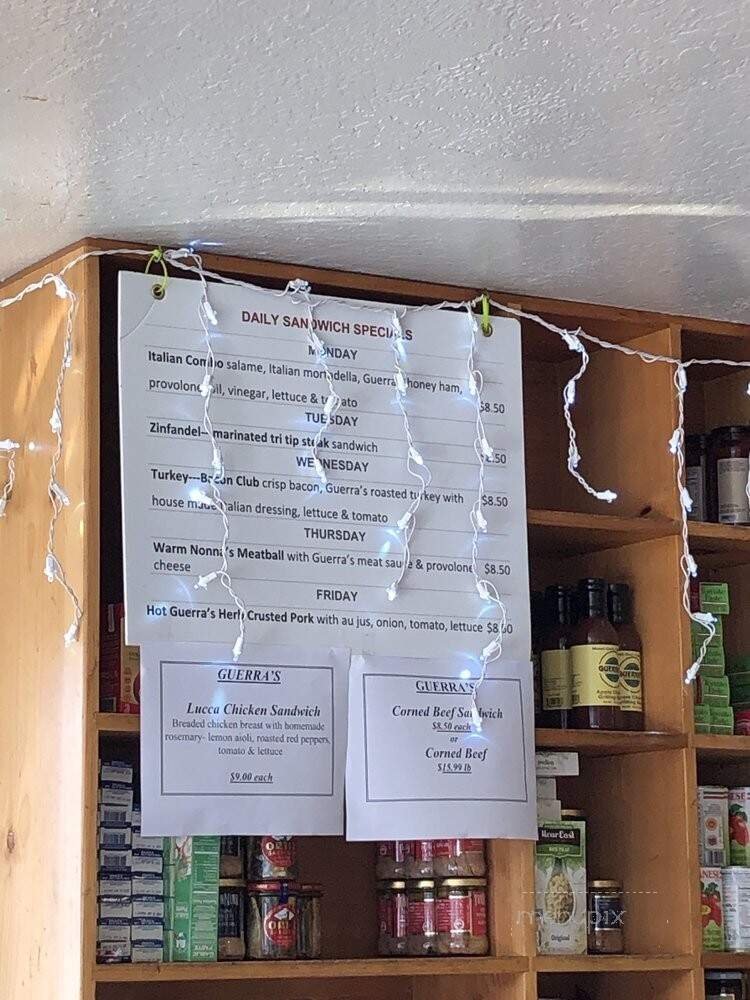 DAILY SANDWICH SPECIALS
MONDAY
Italian Combo salame, Italian mortadella, Guerra's honey ham,
provolone, oil, vinegar, lettuce & tomato $8.50
TUESDAY
Zinfandel-marinated tri tip steak sandwich
WEDNESDAY
Turkey---Bacon Club crisp bacon, Guerra's roasted turkey with $8.50
house made Italian dressing, lettuce & tomato
THURSDAY
Warm Nonna's Meatball with Guerra's meat sauce & provolone $8.50
cheese
FRIDAY
Hot Guerra's Herb Crusted Pork with au jus, onion, tomato, lettuce $8.50
GUERRA'S
Lucca Chicken Sandwich
Breaded chicken breast with homemade
rosemary- lemon aioli, roasted red peppers,
tomato & lettuce
$9.00 each
GUERRA'S
Corned Beef Sandwich
$8.50 each
or
Corned Beef
$15.99 lb
GUERRA'S
Near East
Original
ORTIZ
menupix